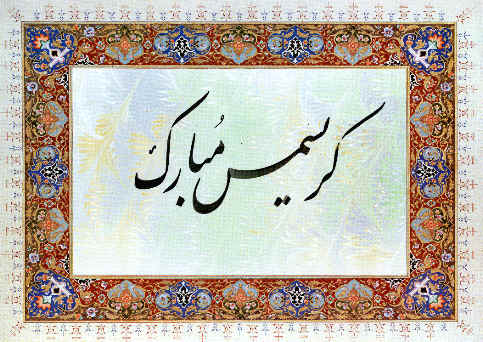 کریسمس مُبارک